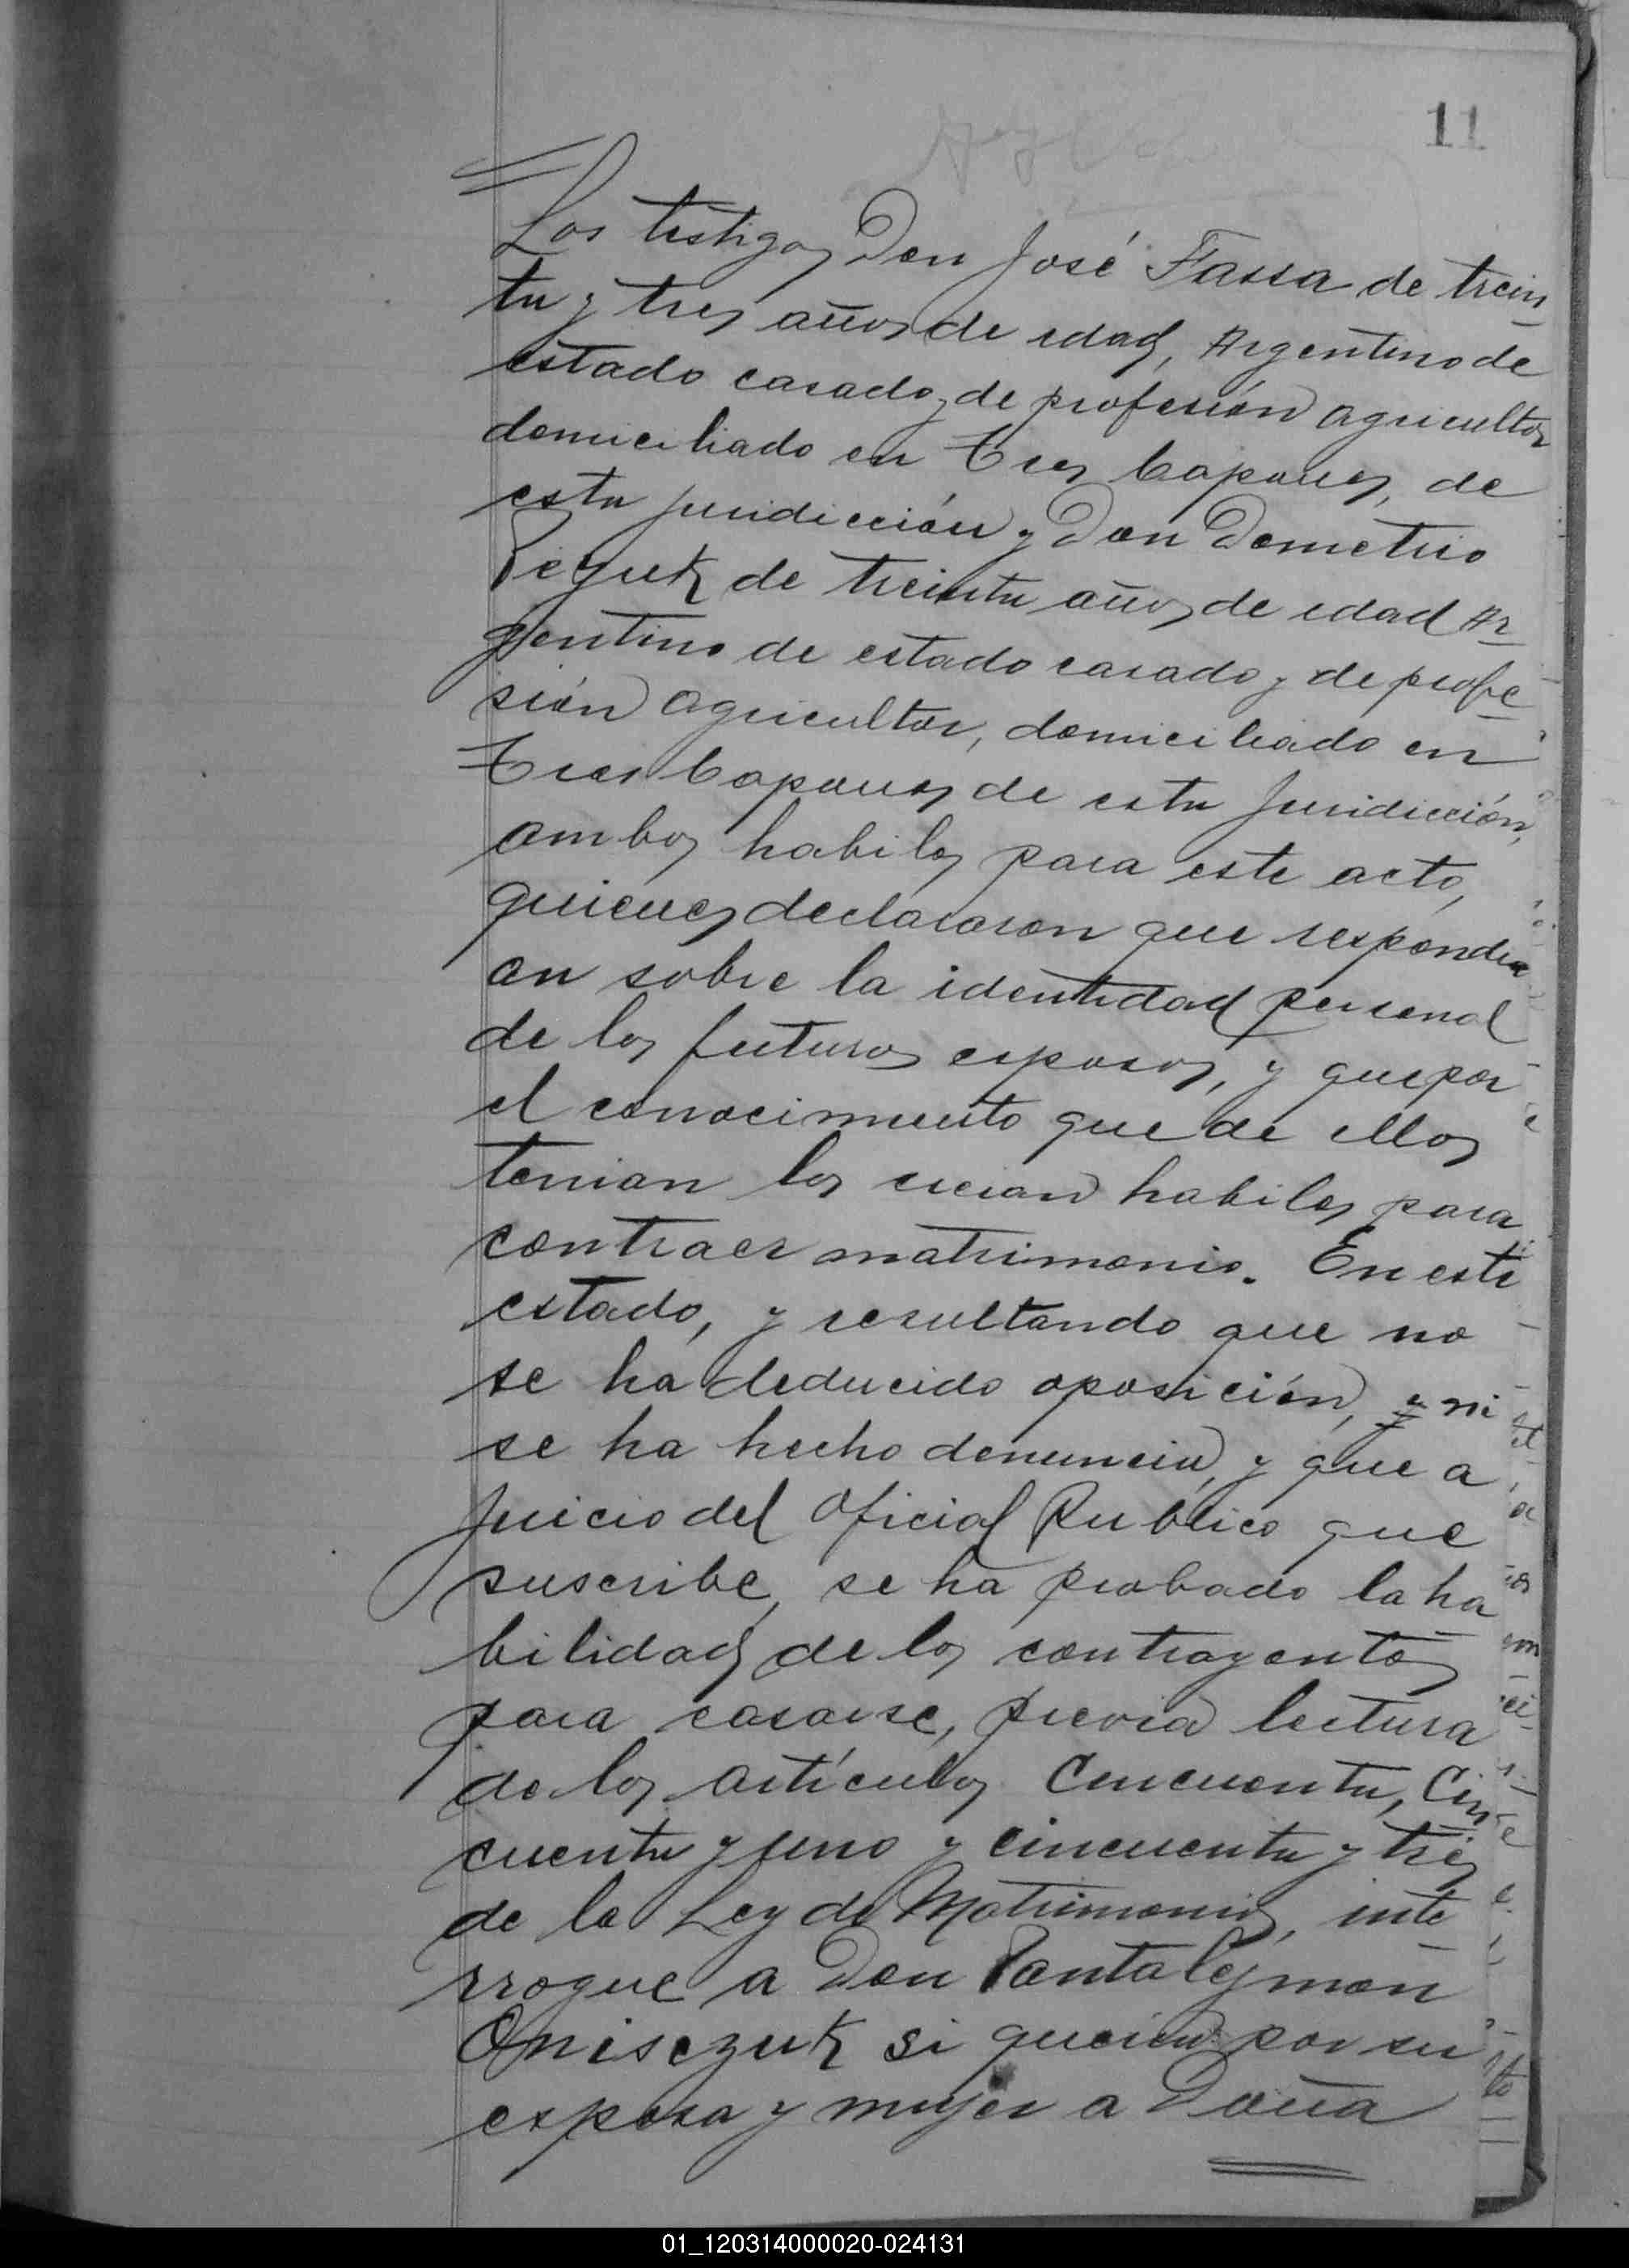 11
Los testigos Don José Fassa de trein
ta y tres años de edad, Argentino de
estado casado, de profesión agricultor
domiciliado en Tres Capones, de
esta juridicción y Don Demetrio
de treinta años de edad Ar
gentino de estado casado y de profe
sión agricultor, domiciliado en
Tres Capones de esta Juridicción,
ambos habiles para este acto,
quienes declararon que respondi
an sobre la identidad personal
de los futuros esposos, y que por
el conocimiento que de ellos
tenian los creian habiles para
contraer matrimonio. En este
estado, y resultando que no
se ha deducido oposición, y ni
se ha hecho denuncia, y que a
juicio del Oficial Publico que
suscribe, se ha probado la ha
bilidad de los contrayentes
para casarse, previa lectura
de los artículos Cincuenta, Cin
cuenta y uno y cincuenta y tres
de la Ley de Matrimonio, inte
rrogue a Don Pantalejmon
Onisczuk si queria por su
esposa y mujer a Doña
01_120314000020-024131